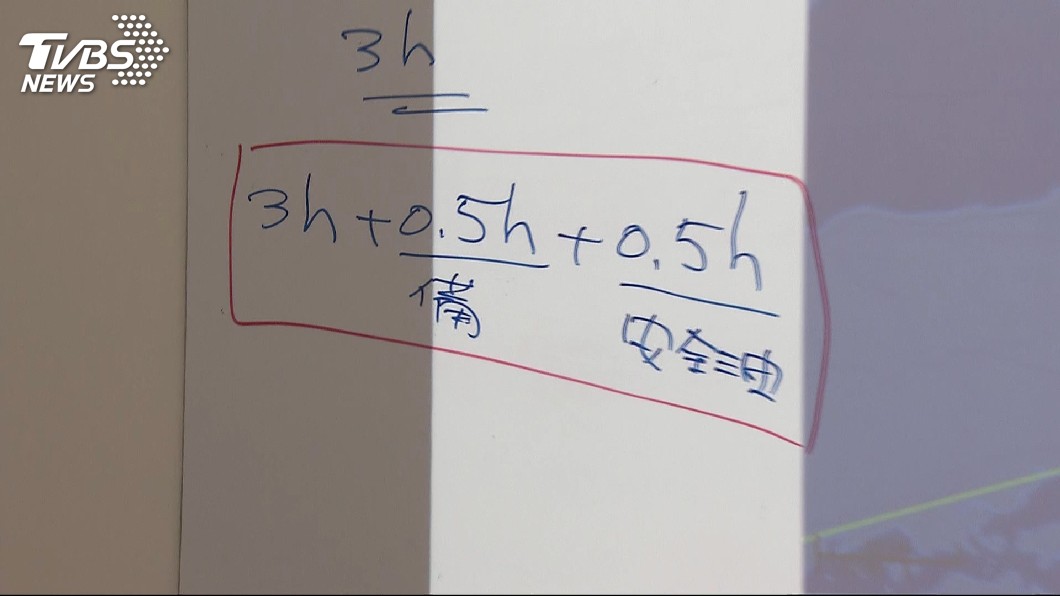 TVBS
NEWS
3h
3h+0.5h+0.5h
備
安全油